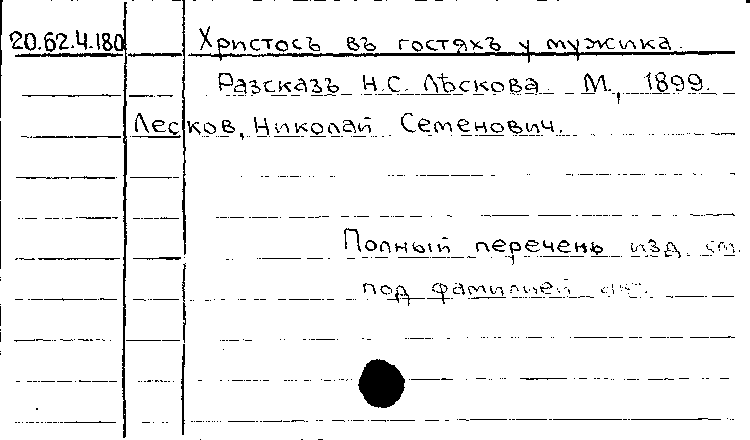 20.62.4.180 Христосъ въ гостяхъ у мужика.
Разсказъ Н.С. Лѣскова. М., 1899.
Лесков, Николай Семенович.
Полный перечень изд. см.
под фамилией